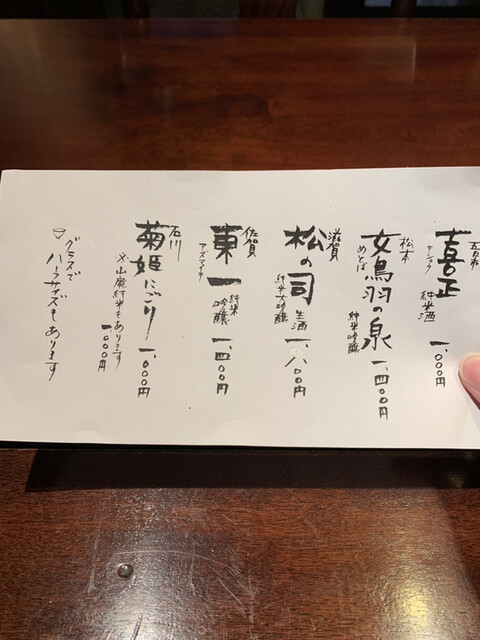 五日市
喜正
キショウ
純米酒
一、〇〇〇円
松本
女鳥羽の泉
めとば
純米吟醸
一、四〇〇円
滋賀
松の司
生酒
純米大吟醸
一、八〇〇円
佐賀
東一
アズマイチ
純米
吟醸
一、四〇〇円
石川
菊姫にごり
一、〇〇〇円
又、山廃純米もあります
一、〇〇〇円
グラスで
ハーフサイズもあります